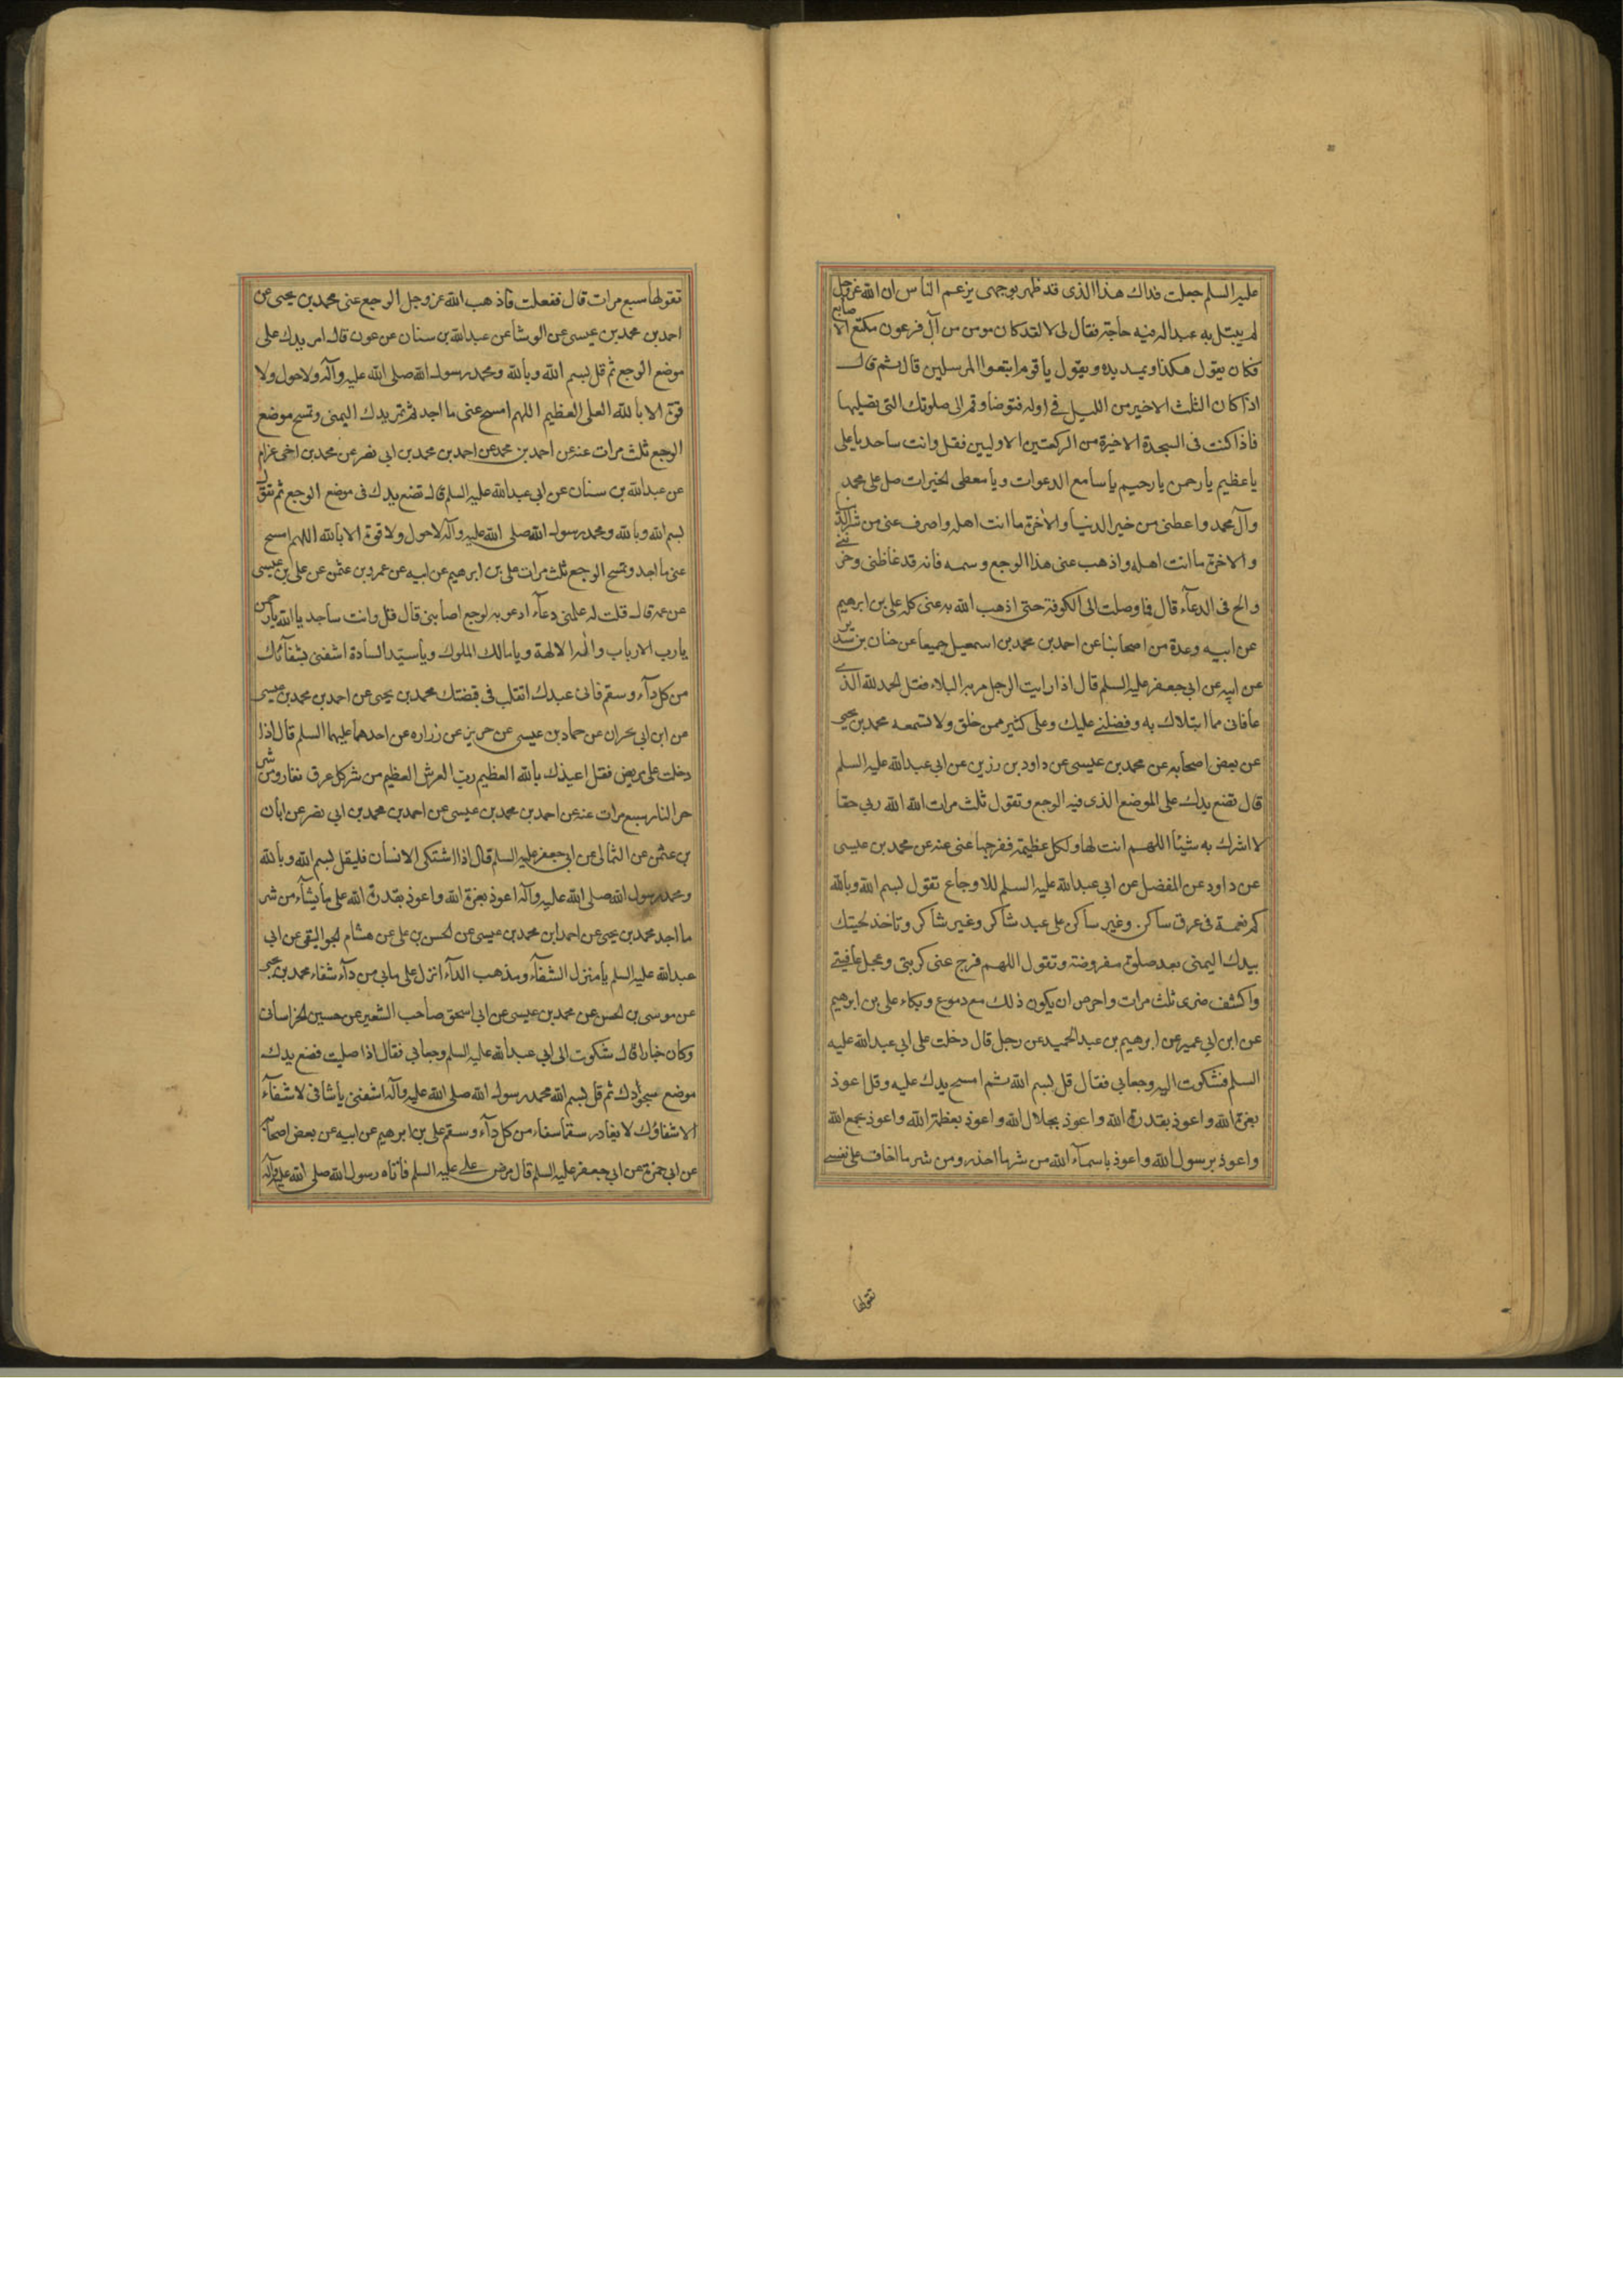 عليه السلم جعلت فداك هذا الذى قد ظهر بوجهى يزعم الناس ان الله عز وجل
لم يبتل به عبدا له فيه حاجة فقال لى لا لقد كان مومن من آل فرعون مكنع الاصابع
فكان يقول هكذا ويمد يده ويقول يا قوم اتبعوا المرسلين قال ثم قال
اذا كان الثلث الاخير من الليل فى اوله فتوضا وقم الى صلوتك التى تصليها
فاذا كنت فى السجدة الاخيرة من الركعتين الاوليين فقل وانت ساجد يا على
يا عظيم يا رحمن يا رحيم يا سامع الدعوات ويا معطى الخيرات صل على محمد
وآل محمد واعطنى من خير الدنيا والاخرة ما انت اهله واصرف عنى من شر الدنيا
والاخرة ما انت اهله واذهب عنى هذا الوجع وسمه فانه قد غاظنى وحزننى
والح فى الدعآء قال فما وصلت الى الكوفة حتى اذهب الله به عنى كله على بن ابرهيم
عن ابيه وعدة من اصحابنا عن احمد بن محمد بن اسمعيل جميعا عن حنان بن سدير
عن ابيه عن ابى جعفر عليه السلم قال اذا رايت الرجل مر به البلاء فقل الحمد لله الذى
عافانى مما ابتلاك به وفضلنى عليك وعلى كثير ممن خلق ولا تسمعه محمد بن يحيى
عن بعض اصحابه عن محمد بن عيسى عن داود بن رزين عن ابى عبد الله عليه السلم
قال تضع يدك على الموضع الذى فيه الوجع وتقول ثلث مرات الله الله ربى حقا
لا اشرك به شيئا اللهم انت لها ولكل عظيمة ففرجها عنى عنه عن محمد بن عيسى
عن داود عن المفضل عن ابى عبد الله عليه السلم للاوجاع تقول بسم الله وبالله
كم نعمة فى عرق ساكن وغير ساكن على عبد شاكر وغير شاكر وتاخذ لحيتك
بيدك اليمنى بعد صلوة مفروضة وتقول اللهم فرج عنى كربتى وعجل عافيتى
واكشف ضرى ثلث مرات واحرص ان يكون ذلك مع دموع وبكاء على بن ابرهيم
عن ابن ابى عمير عن ابرهيم بن عبد الحميد عن رجل قال دخلت على ابى عبد الله عليه
السلم فشكوت اليه وجعا بى فقال قل بسم الله ثم امسح يدك عليه وقل اعوذ
بعزة الله واعوذ بقدرة الله واعوذ بجلال الله واعوذ بعظمة الله واعوذ بجمع الله
واعوذ برسول الله واعوذ باسمآء الله من شر ما احذر ومن شر ما اخاف على نفسى
تقولها
تقولها سبع مرات قال ففعلت فاذهب الله عز وجل الوجع عنى محمد بن يحيى عن
احمد بن محمد بن عيسى عن الوشا عن عبد الله بن سنان عن عون قال امر يدك على
موضع الوجع ثم قل بسم الله وبالله ومحمد رسول الله صلى الله عليه وآله ولا حول ولا
قوة الا بالله العلى العظيم اللهم امسح عنى ما اجد ثم تمر يدك اليمنى وتمسح موضع
الوجع ثلث مرات عنه عن احمد بن محمد عن احمد بن محمد بن ابى نصر عن محمد بن اخى عرام
عن عبد الله بن سنان عن ابى عبد الله عليه السلم قال تضع يدك فى موضع الوجع ثم تقول
بسم الله وبالله ومحمد رسول الله صلى الله عليه وآله لا حول ولا قوة الا بالله اللهم امسح
عنى ما اجد وتمسح الوجع ثلث مرات على بن ابرهيم عن ابيه عن عمرو بن عثمن عن على بن عيسى
عن عمه قال قلت له علمنى دعآء ادعو به لوجع اصابنى قال قل وانت ساجد يا الله يا رحمن
يا رب الارباب واله الالهة ويا مالك الملوك ويا سيد السادة اشفنى بشفآئك
من كل دآء وسقم فانى عبدك اتقلب فى قبضتك محمد بن يحيى عن احمد بن محمد بن عيسى
عن ابن ابى نجران عن حماد بن عيسى عن حريز عن زراره عن احدهما عليهما السلم قال اذا
دخلت على مريض فقل اعيذك بالله العظيم رب العرش العظيم من شر كل عرق نغار ومن شر
حر النار سبع مرات عنه عن احمد بن محمد بن عيسى عن احمد بن محمد بن ابى نصر عن ابان
بن عثمن عن الثمالى عن ابى جعفر عليه السلم قال اذا اشتكى الانسان فليقل بسم الله وبالله
ومحمد رسول الله صلى الله عليه وآله اعوذ بعزة الله واعوذ بقدرة الله على ما يشآء من شر
ما اجد محمد بن يحيى عن احمد ابن محمد بن عيسى عن الحسن بن على عن هشام الجواليقى عن ابى
عبد الله عليه السلم يا منزل الشفآء ومذهب الدآء انزل على ما بى من دآء شفاء محمد بن يحيى
عن موسى بن الحسن عن محمد بن عيسى عن ابى اسحق صاحب الشعير عن حسين الخراسانى
وكان خبازا قال شكوت الى ابى عبد الله عليه السلم وجعا بى فقال اذا صليت فضع يدك
موضع سجودك ثم قل بسم الله محمد رسول الله صلى الله عليه وآله اشفنى يا شافى لا شفآء
الا شفاؤك لا يغادر سقما شفاء من كل دآء وسقم على بن ابرهيم عن ابيه عن بعض اصحابه
عن ابى حمزة عن ابى جعفر عليه السلم قال مرض على عليه السلم فاتاه رسول الله صلى الله عليه وآله